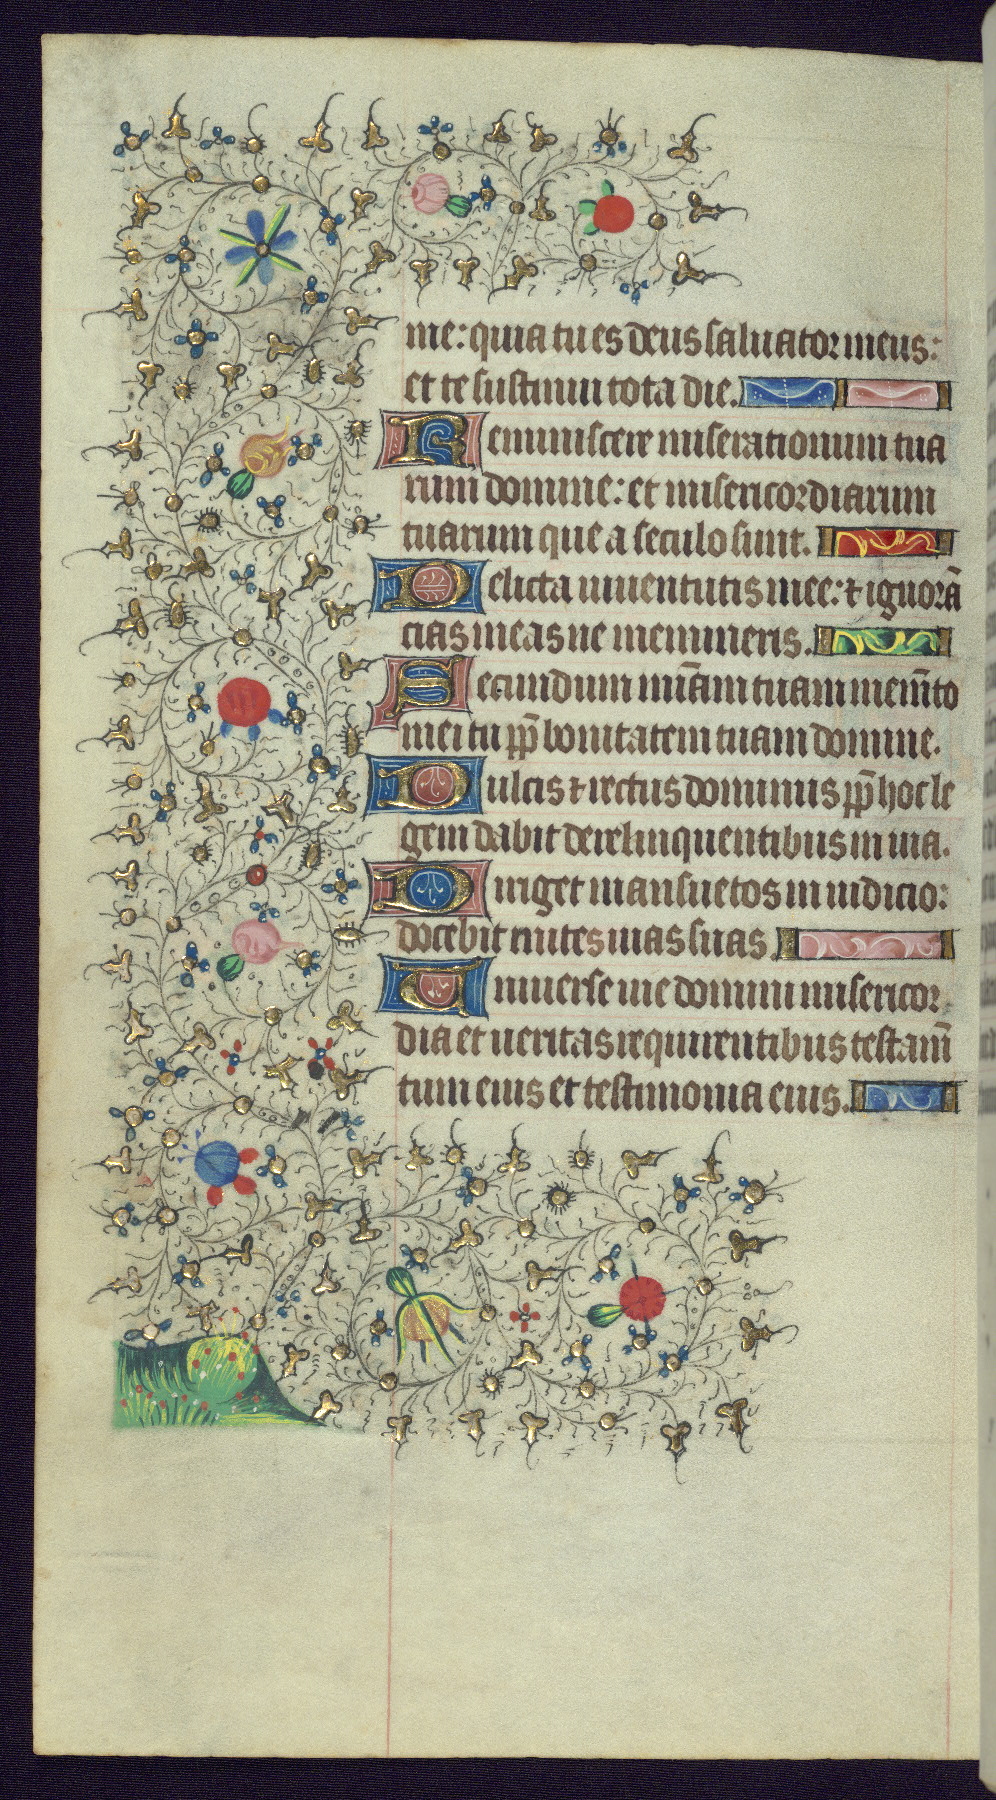 me: quia tu es deus saluator meus:
et te sustinui tota die.
Reminiscere miserationum tua
rum domine: et misericordiarum
tuarum que a seculo sunt.
Delicta iuuentutis mee: ⁊ ignorā
cias meas ne memineris.
Secundum mīam tuam mem̄to
mei tu pp̄ bonitatem tuam domine.
Dulcis ⁊ rectus dominus pp̄ hoc le
gem dabit derelinquentibus in uia.
Diriget mansuetos in iudicio:
docebit mites uias suas.
Uniuerse uie domini misericor
dia et ueritas requirentibus testam̄
tum eius et testimonia eius.